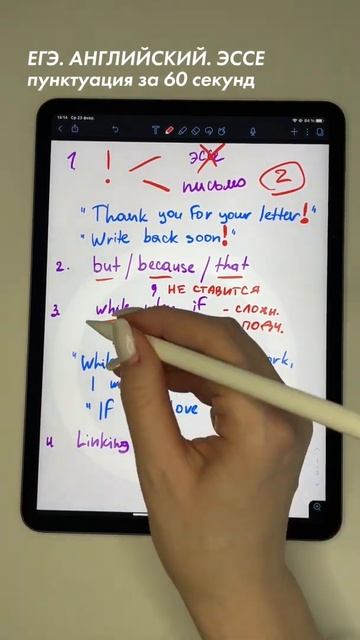 ЕГЭ. АНГЛИЙСКИЙ. ЭССЕ
пунктуация за 60 секунд
14:14 Ср 23 февр. 84 %
1. ! эссе
письмо 2
"Thank you For your letter!"
"Write back soon!"
2. but / because / that
, НЕ СТАВИТСЯ
3. if - сложн.
подч.
"Whil
I
"IF love
4. Linking